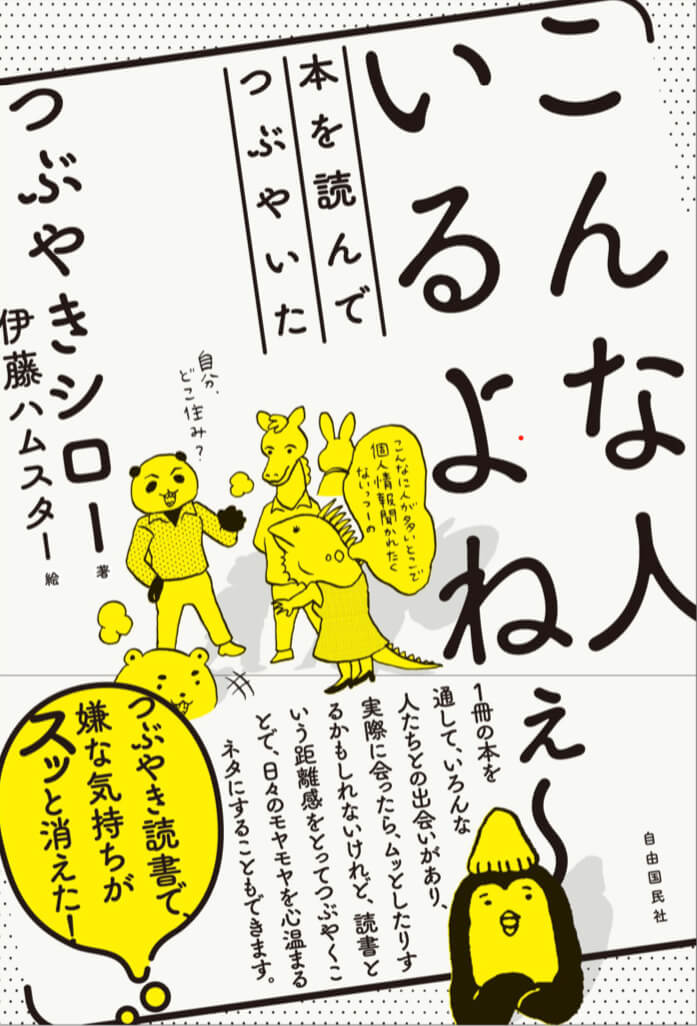 こんな人
いるよねぇ〜
本を読んで
つぶやいた
つぶやきシロー 著
伊藤ハムスター 絵
自分、
どこ住み？
こんなに人が多いとこで
個人情報聞かれたく
ないっつーの
1冊の本を
通して、いろんな
人たちとの出会いがあり、
実際に会ったら、ムッとしたりす
るかもしれないけれど、読書と
いう距離感をとってつぶやくこ
とで、日々のモヤモヤを心温まる
ネタにすることもできます。
つぶやき読書で、
嫌な気持ちが
スッと消えた！
自由国民社